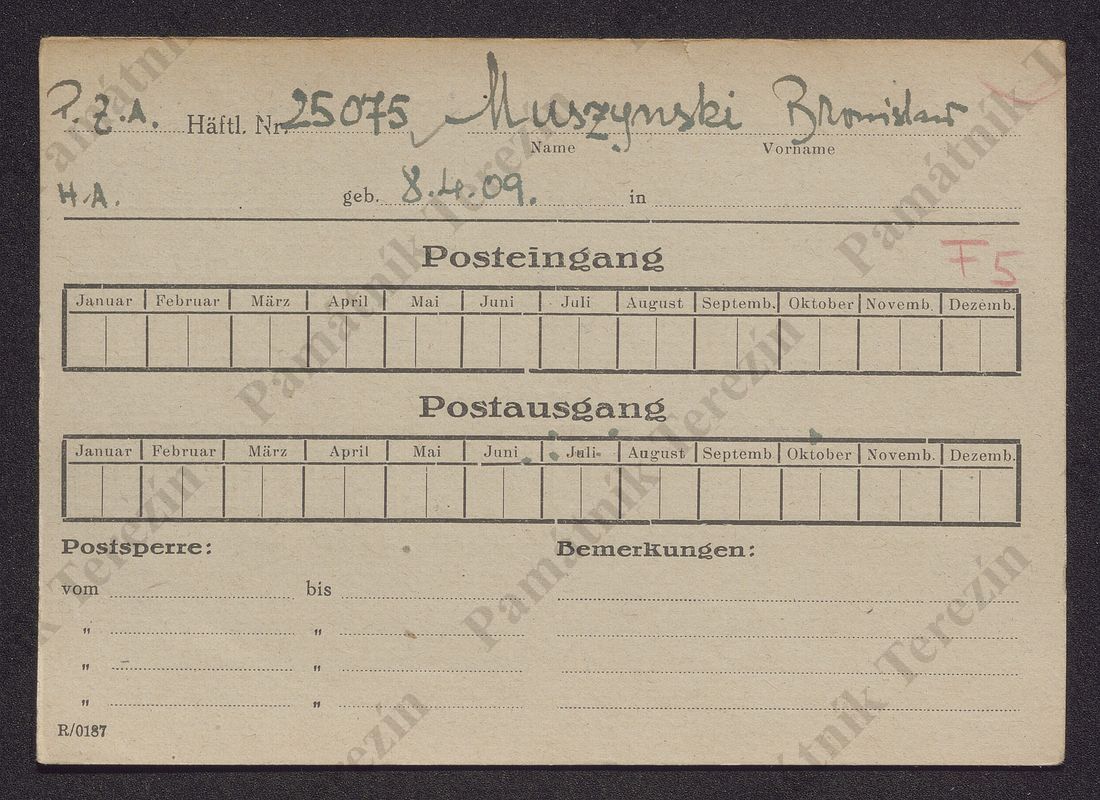 P.Z.A. Häftl. Nr. 25075 Muszynski Bronislaw
Name Vorname
H.A. geb. 8.4.09. in
Posteingang F5
Januar Februar März April Mai Juni Juli August Septemb. Oktober Novemb. Dezemb.
Postausgang
Januar Februar März April Mai Juni Juli August Septemb Oktober Novemb. Dezemb.
Postsperre: Bemerkungen:
vom bis
" "
" "
" "
R/0187
Památník Terezín